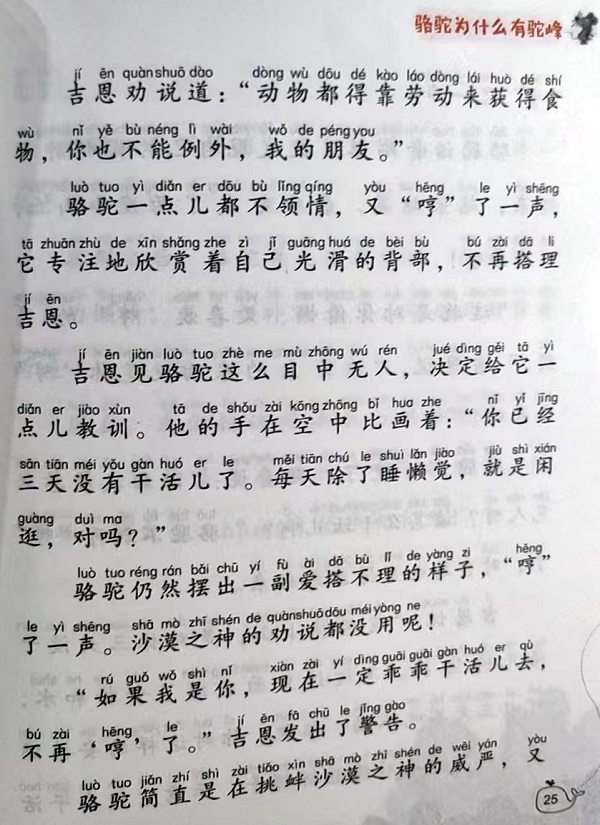 骆驼为什么有驼峰
jí ēn quàn shuō dào dòng wù dōu dé kào láo dòng lái huò dé shí
吉恩劝说道：“动物都得靠劳动来获得食
wù nǐ yě bù néng lì wài wǒ de péng you
物，你也不能例外，我的朋友。”
luò tuo yì diǎn er dōu bù lǐng qíng yòu hēng le yì shēng
骆驼一点儿都不领情，又“哼”了一声，
tā zhuān zhù de xīn shǎng zhe zì jǐ guāng huá de bèi bù bú zài dā li
它专注地欣赏着自己光滑的背部，不再搭理
jí ēn
吉恩。
jí ēn jiàn luò tuo zhè me mù zhōng wú rén jué dìng gěi tā yì
吉恩见骆驼这么目中无人，决定给它一
diǎn er jiào xùn tā de shǒu zài kōng zhōng bǐ hua zhe nǐ yǐ jīng
点儿教训。他的手在空中比画着：“你已经
sān tiān méi yǒu gàn huó er le měi tiān chú le shuì lǎn jiào jiù shì xián
三天没有干活儿了。每天除了睡懒觉，就是闲
guàng duì ma
逛，对吗？”
luò tuo réng rán bǎi chū yí fù ài dā bù lǐ de yàng zi hēng
骆驼仍然摆出一副爱搭不理的样子，“哼”
le yì shēng shā mò zhī shén de quàn shuō dōu méi yòng ne
了一声。沙漠之神的劝说都没用呢！
rú guǒ wǒ shì nǐ xiàn zài yí dìng guāi guāi gàn huó er qù
“如果我是你，现在一定乖乖干活儿去，
bú zài hēng le jí ēn fā chū le jǐng gào
不再‘哼’了。”吉恩发出了警告。
luò tuo jiǎn zhí shì zài tiǎo xìn shā mò zhī shén de wēi yán yòu
骆驼简直是在挑衅沙漠之神的威严，又
25